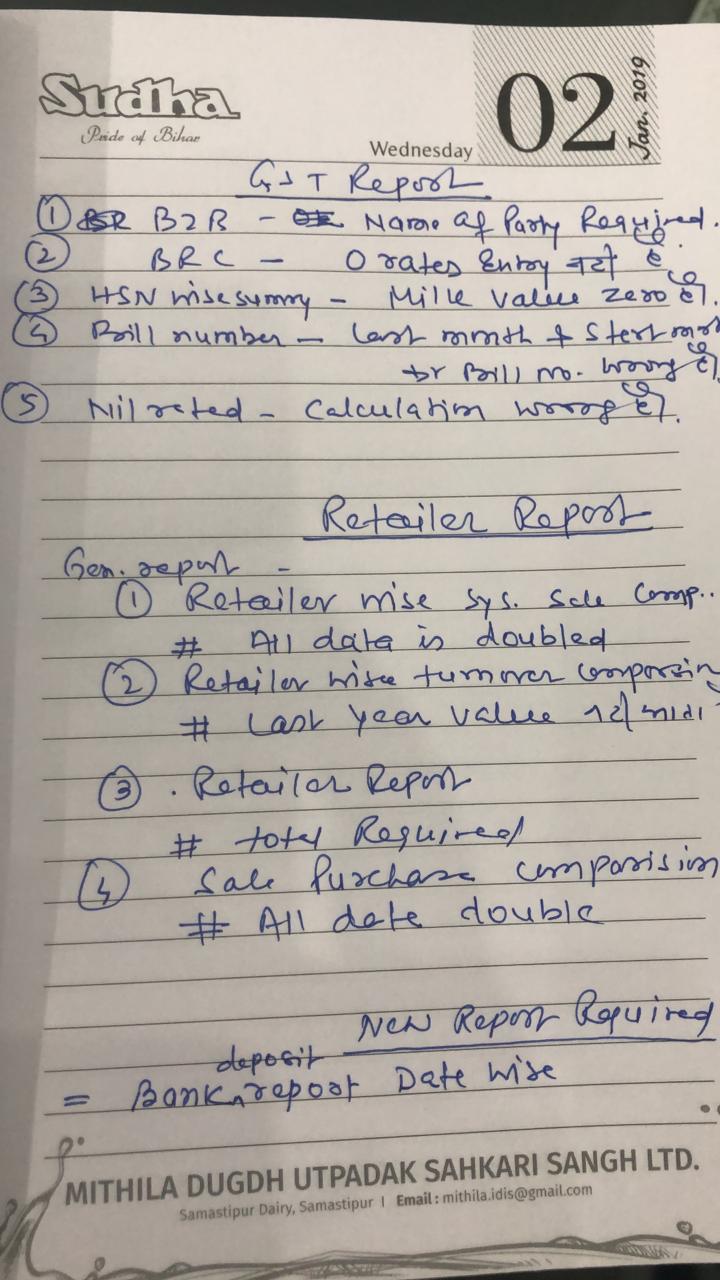 Sudha
Pride of Bihar
Wednesday
02
Jan. 2019
GST Report
① B2B - Name of Party Required.
② BRC - 0 rates Entry है
③ HSN wise summry - Milk value zero है।
④ Bill number - Last month & Start
Bill no. wrong है।
⑤ Nil rated - Calculation wrong है।
Retailer Report
Gen. report -
① Retailer wise sys. Sale Comp..
# All data is doubled
② Retailer wise turnover comparsin
# Last year value
③ . Retailer Report
# total Required
④ Sale Purchase comparision
# All date double
New Report Required
= Bank deposit report Date wise
MITHILA DUGDH UTPADAK SAHKARI SANGH LTD.
Samastipur Dairy, Samastipur | Email : mithila.idis@gmail.com